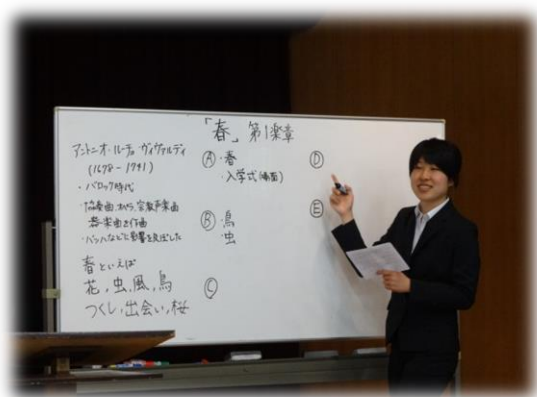 「春」第1楽章
アントニオ・ルーチョ・ヴィヴァルディ
(1678-1741)
・バロック時代
・協奏曲、オペラ、室内声楽曲
楽曲を作曲
・バッハなどに影響を及ぼした
春といえば
花,虫,風,鳥
つくし,出会い,桜
Ⓐ・春
・入学式(場面)
Ⓑ・鳥
・虫
Ⓒ
Ⓓ
Ⓔ